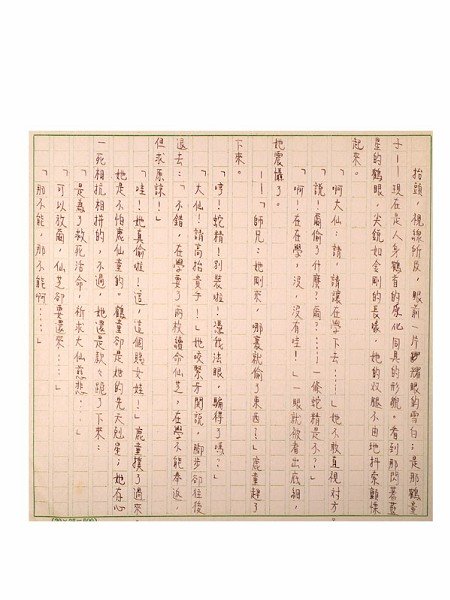 抬頭,視線所及,眼前一片耀眼的雪白;是那鶴童
子——現在是人身鶴首的原化同真的形貌。看到那閃著藍
星的鶴眼,尖銳如金剛的長喙,她的双腿不由地抖索顫慄
起來。
「啊大仙:請,請讓在學下去……」她不敢直視对方。
「說!爾偷了什麼?爾?……;一條蛇精是不?」
「啊!在在學,沒,沒有哇!」一眼就被看出底細,
她震懾了。
——「師兄:她剛來,哪裏就偷了東西?」鹿童趕了
下來。
「哼!蛇精!別裝啦!憑我法眼,騙得了嗎?」
「大仙!請高抬貴手!」她咬緊牙関說,脚步卻往後
退去:「不錯,在學要了兩枚續命仙芝,在學不能奉返,
但求原諒!」
「哇!她真偷啦!這,這個賜女娃!」鹿童撲了過來。
她是不怕鹿仙童的。鶴童卻是她的先天剋星;她存心
一死相抗相拼的,不過,她還是款款跪了下來:
「是為了救死活命,祈求大仙慈悲……」
「可以放爾,仙芝卻要還來……」
「那不能,那不能啊……」